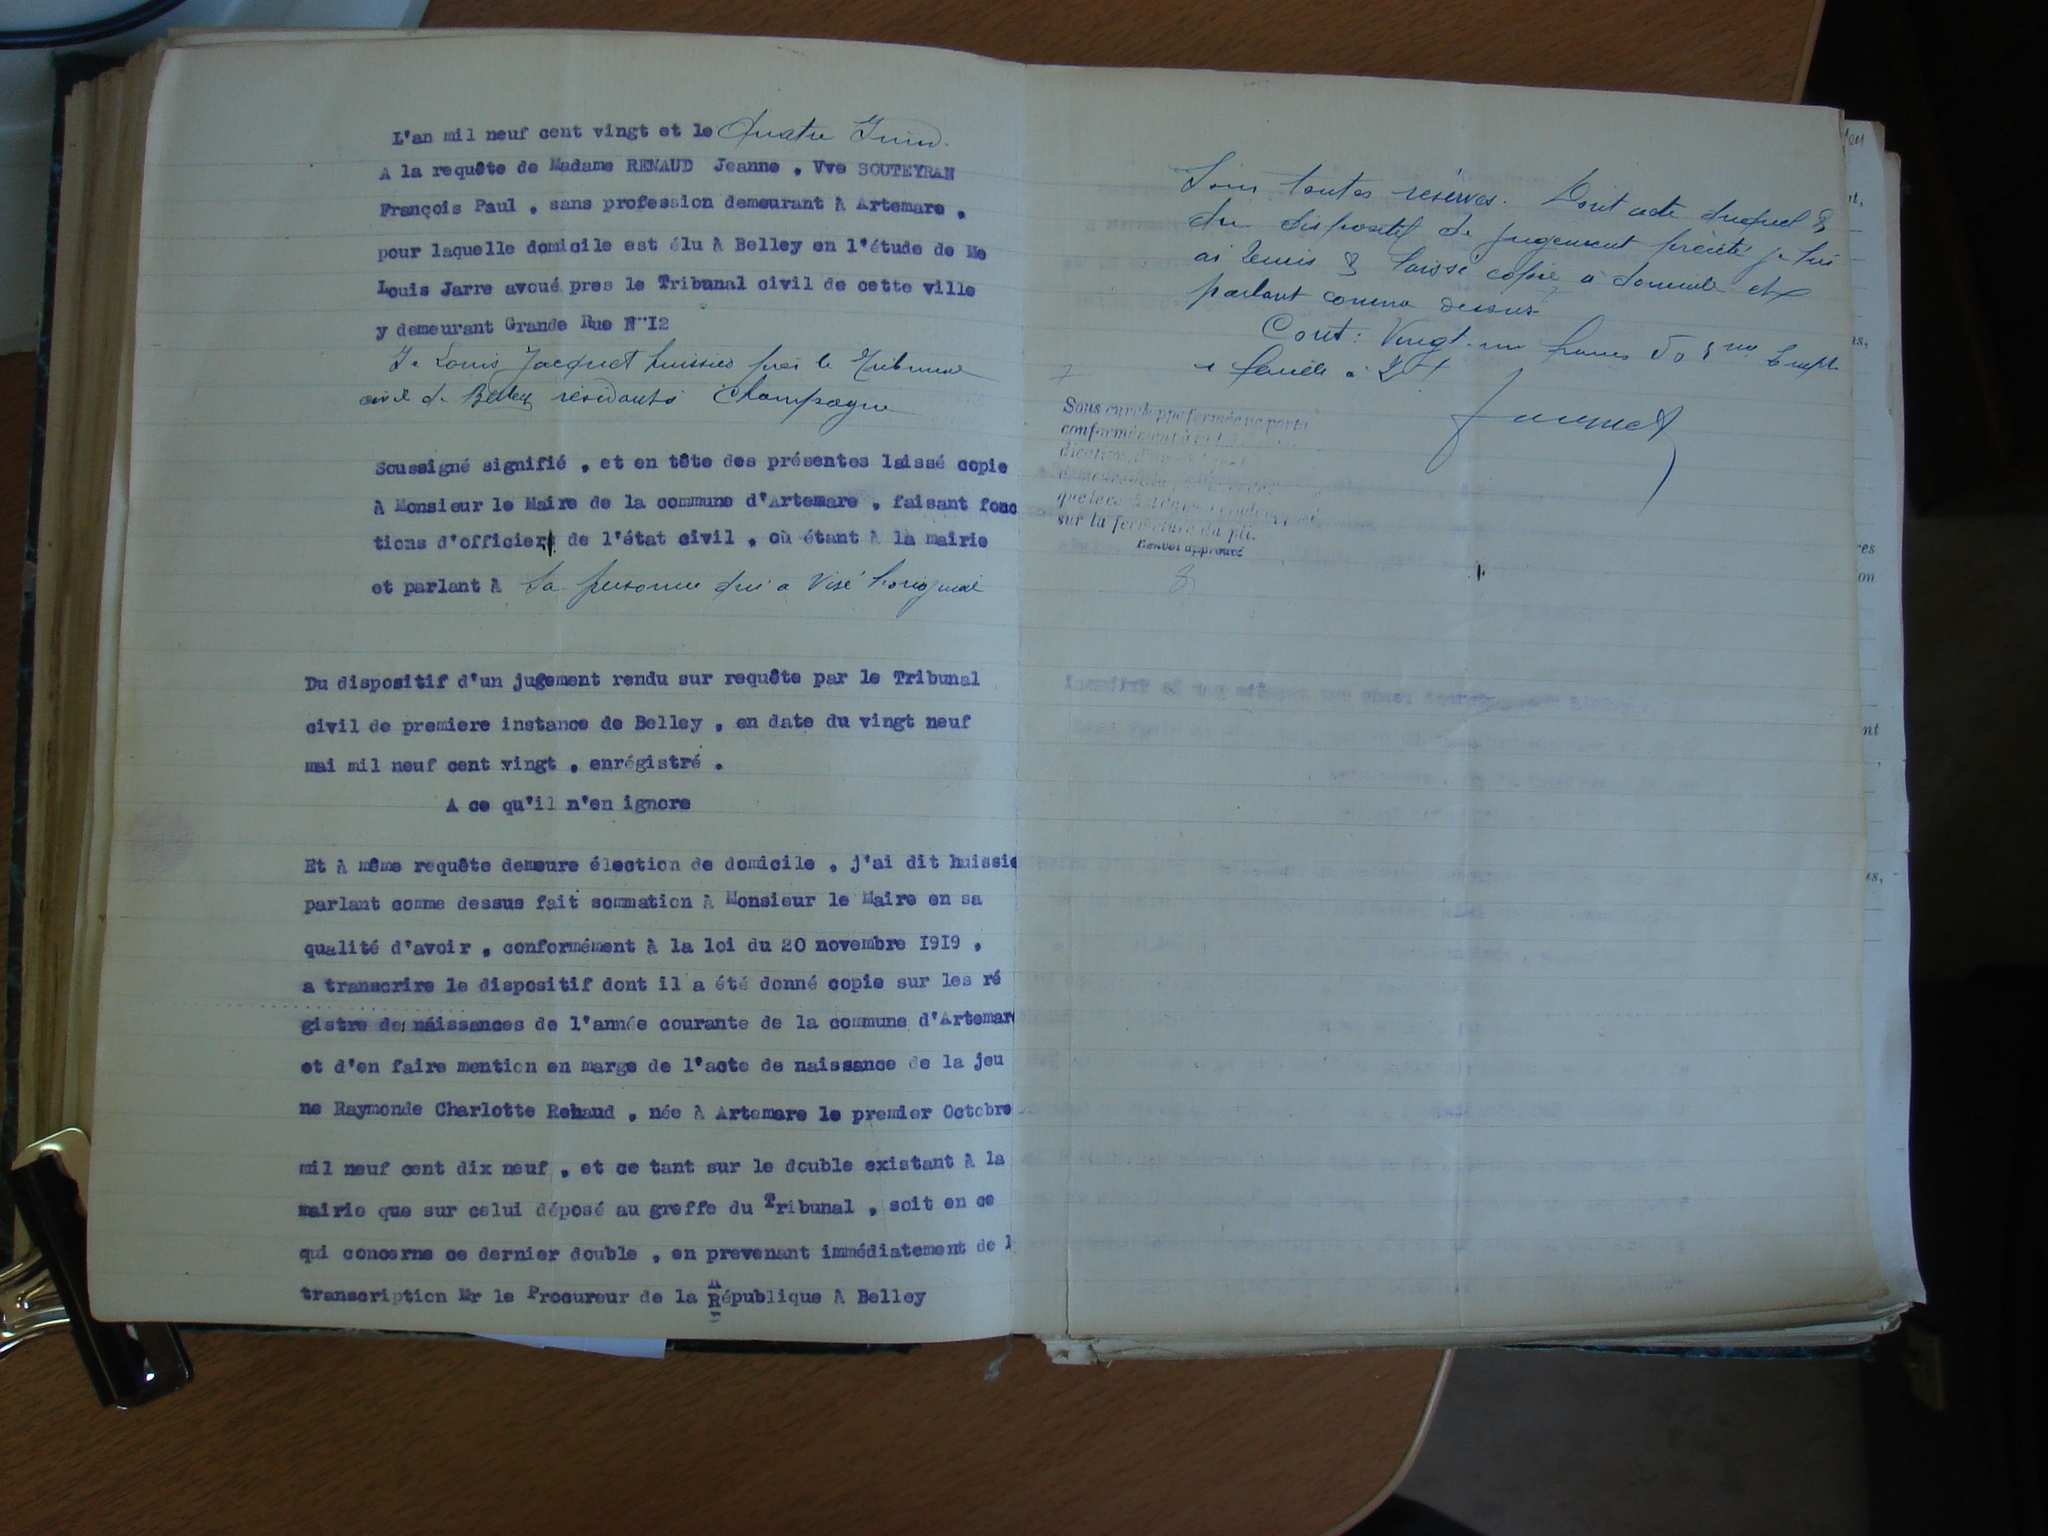 L'an mil neuf cent vingt et le Quatre Juin.
A la requête de Madame RENAUD Jeanne , Vve SOUTEYRAN
François Paul , sans profession demeurant à Artemare ,
pour laquelle domicile est élu à Belley en l'étude de Me
Louis Jarre avoué pres le Tribunal civil de cette ville
y demeurant Grande Rue N°I2
Je Louis Jacquet huissier près le Tribunal
civil de Belley résidant à Champagne
Soussigné signifié , et en tête des présentes laissé copie
à Monsieur le Maire de la commune d'Artemare , faisant fonc
tions d'officier de l'état civil , où étant à la mairie
et parlant à sa personne qui a visé l'original
Du dispositif d'un jugement rendu sur requête par le Tribunal
civil de premiere instance de Belley , en date du vingt neuf
mai mil neuf cent vingt , enrégistré .
A ce qu'il n'en ignore
Et à même requête demeure élection de domicile , j'ai dit huissie
parlant comme dessus fait sommation à Monsieur le Maire en sa
qualité d'avoir , conformément à la loi du 20 novembre I9I9 ,
a transcrire le dispositif dont il a été donné copie sur les ré
gistre de naissances de l'année courante de la commune d'Artemare
et d'en faire mention en marge de l'acte de naissance de la jeu
ne Raymonde Charlotte Renaud , née à Artemare le premier Octobre
mil neuf cent dix neuf , et ce tant sur le double existant à la
mairie que sur celui déposé au greffe du Tribunal , soit en ce
qui concerne ce dernier double , en prevenant immédiatement de l
transcription Mr le Procureur de la République à Belley
Sous toutes réserves. Dont acte duquel &
du dispositif de jugement précité je lui
ai remis & laissé copie à domicile et
parlant comme dessus
Cout : Vingt-un francs 50
Jacquet
Sous enveloppe fermée ne porta
conformément à
sur la fermeture du pli.
Renvoi approuvé